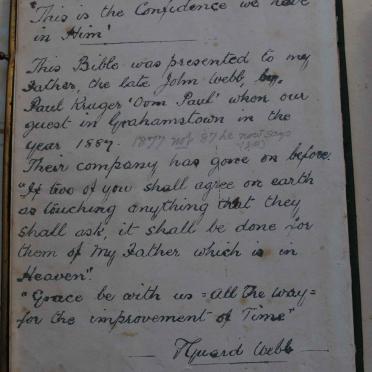 "This is the Confidence we have
in Him'
This Bible was presented to my
Father, the late John Webb, by
Paul Kruger 'Oom Paul' when our
guest in Grahamstown in the
year 1887. 1877 not 87 he now says
Their company has gone on before.
"If two of you shall agree on earth
as touching anything that they
shall ask, it shall be done for
them of My Father which is in
Heaven".
"Grace be with us = All The Way =
for the improvement of Time"
Webb